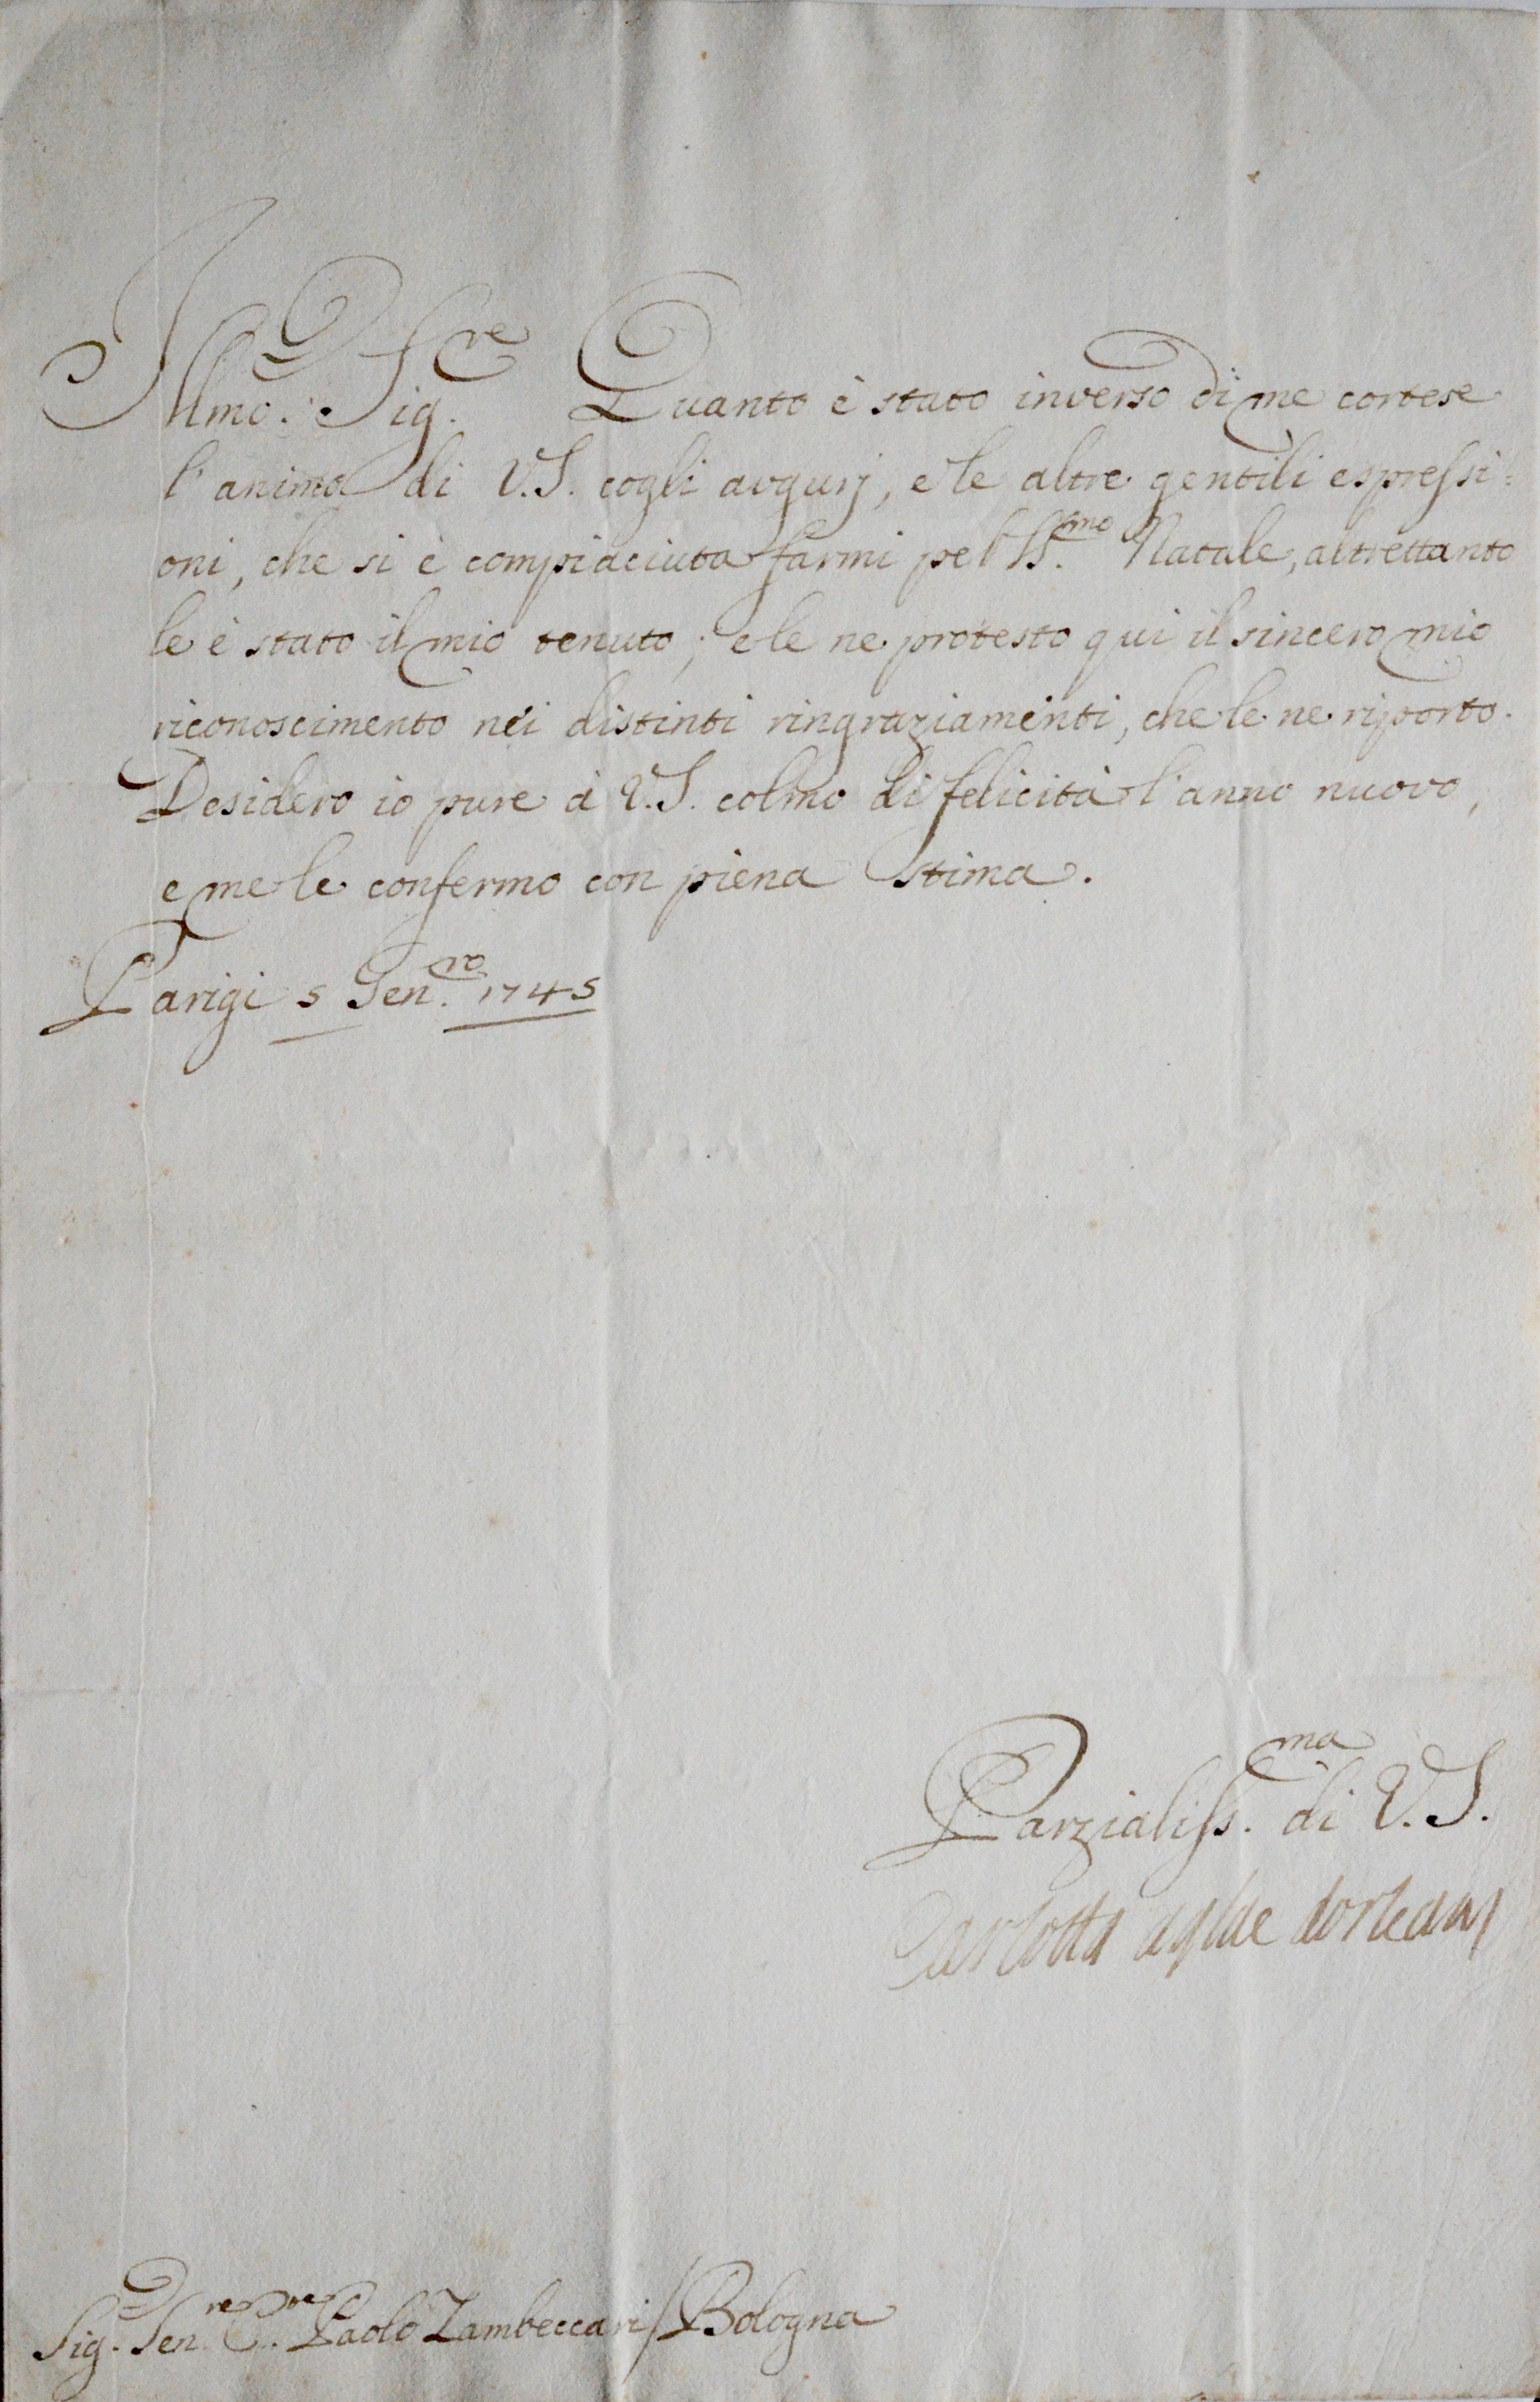 Illmo. Sig.re Quanto è stato inverso di me cortese
l'animo di V.S. cogli augurj, e le altre gentili espressi=
oni, che si è compiaciuta farmi pel SS.mo Natale, altrettanto
le è stato il mio tenuto; e le ne protesto qui il sincero mio
riconoscimento nei distinti ringraziamenti, che le ne riporto.
Desidero io pure à V.S. colmo di felicità l'anno nuovo,
e me le confermo con piena stima.
Parigi 5 Gen.ro 1745
Parzialiss.ma di V.S.
Carlotta aglae dorleans
Sig.re Sen.re Paolo Zambeccari / Bologna